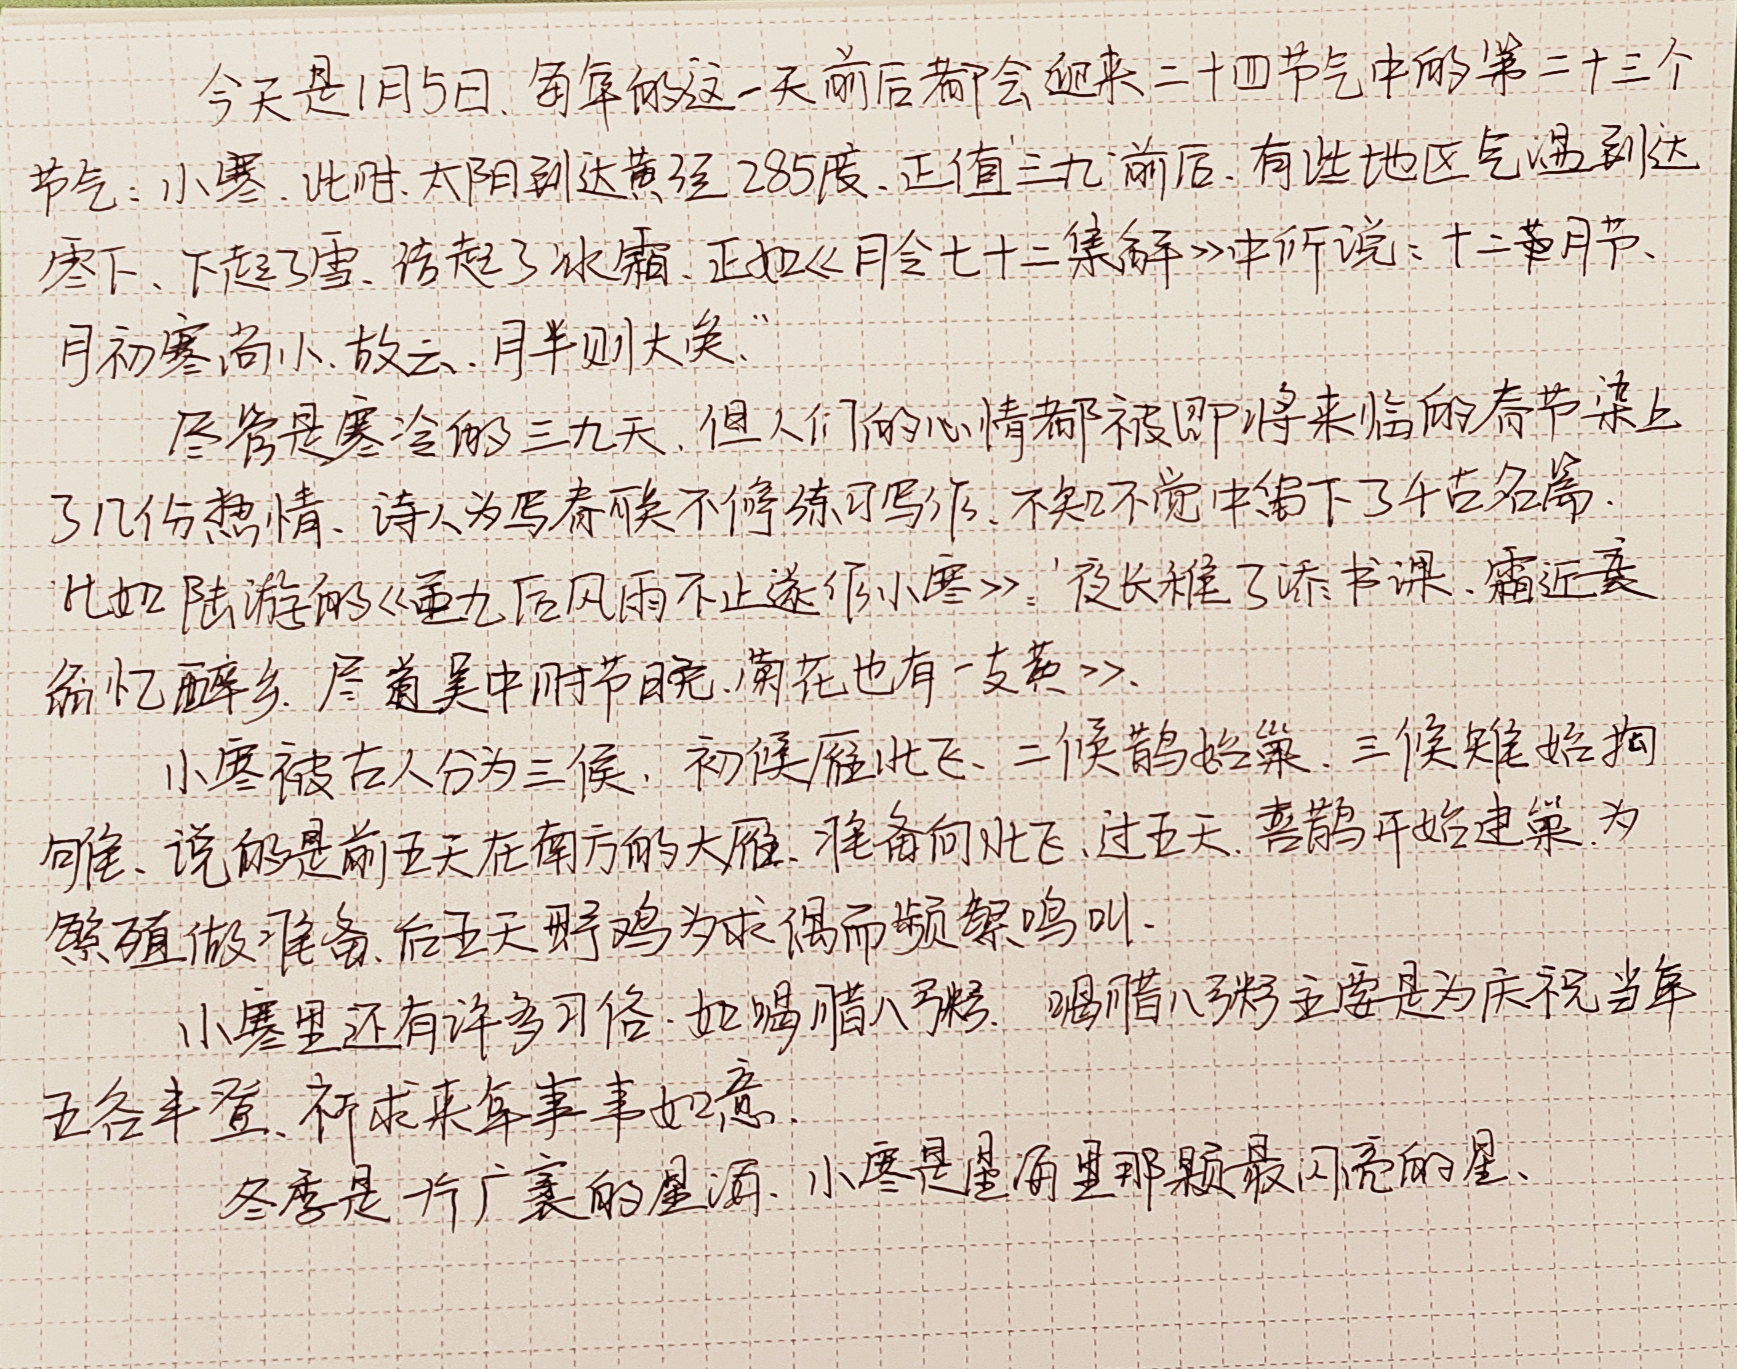 今天是1月5日、每年的这一天前后都会迎来二十四节气中的第二十三个
节气：小寒.此时.太阳到达黄径285度、正值"三九"前后.有些地区气温到达
零下、下起了雪、结起了冰霜、正如《月令七十二集解》中所说：十二月节、
月初寒尚小.故云.月半则大矣、"
尽管是寒冷的三九天.但人们的心情都被即将来临的春节染上
了几份热情、诗人为写春联不停练习写作、不知不觉中留下了千古名篇.
比如陆游的《重九后风雨不止遂作小寒》："夜长稚了添书课、霜近衰
翁忆醉乡.尽道吴中时节晚.菊花也有一支黄》.
小寒被古人分为三候，初候雁北飞、二候鹊始巢.三候雉始
雊、说的是前五天在南方的大雁、准备向北飞、过五天.喜鹊开始建巢.为
繁殖做准备、后五天野鸡为求偶而频繁鸣叫.
小寒里还有许多习俗.如喝腊八粥.喝腊八粥主要是为庆祝当年
五谷丰登、祈求来年事事如意.
冬季是一片广袤的星海、小寒是星海里那颗最闪亮的星、